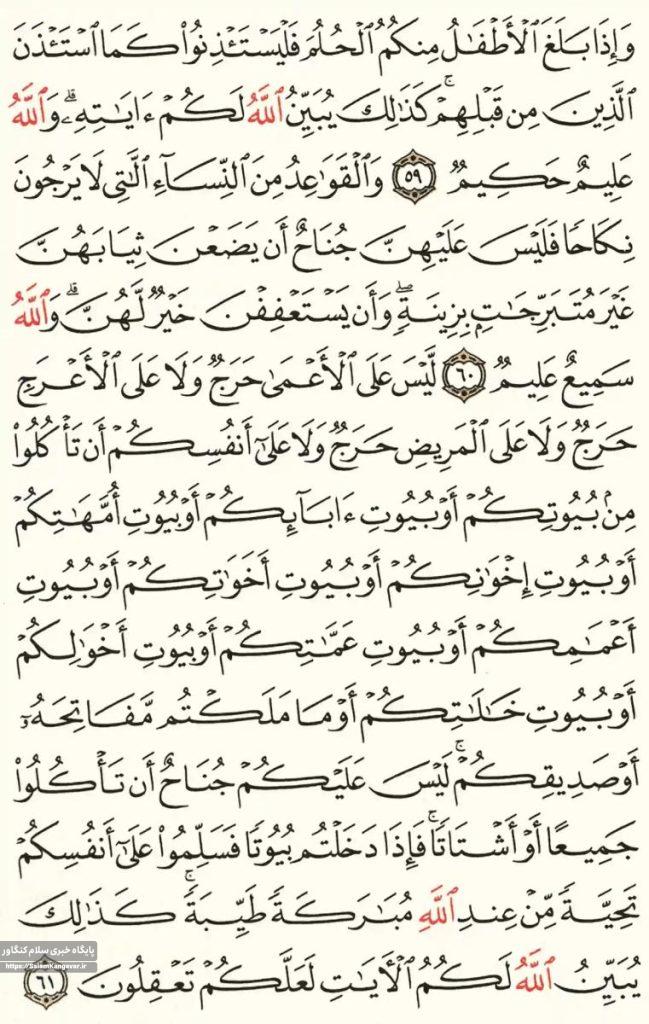 وَإِذَا بَلَغَ ٱلْأَطْفَٰلُ مِنكُمُ ٱلْحُلُمَ فَلْيَسْتَـْٔذِنُوا۟ كَمَا ٱسْتَـْٔذَنَ
ٱلَّذِينَ مِن قَبْلِهِمْ ۚ كَذَٰلِكَ يُبَيِّنُ ٱللَّهُ لَكُمْ ءَايَٰتِهِۦ ۗ وَٱللَّهُ
عَلِيمٌ حَكِيمٌ ٥٩ وَٱلْقَوَٰعِدُ مِنَ ٱلنِّسَآءِ ٱلَّٰتِى لَا يَرْجُونَ
نِكَاحًا فَلَيْسَ عَلَيْهِنَّ جُنَاحٌ أَن يَضَعْنَ ثِيَابَهُنَّ
غَيْرَ مُتَبَرِّجَٰتٍۭ بِزِينَةٍ ۖ وَأَن يَسْتَعْفِفْنَ خَيْرٌ لَّهُنَّ ۗ وَٱللَّهُ
سَمِيعٌ عَلِيمٌ ٦٠ لَّيْسَ عَلَى ٱلْأَعْمَىٰ حَرَجٌ وَلَا عَلَى ٱلْأَعْرَجِ
حَرَجٌ وَلَا عَلَى ٱلْمَرِيضِ حَرَجٌ وَلَا عَلَىٰٓ أَنفُسِكُمْ أَن تَأْكُلُوا۟
مِنۢ بُيُوتِكُمْ أَوْ بُيُوتِ ءَابَآئِكُمْ أَوْ بُيُوتِ أُمَّهَٰتِكُمْ
أَوْ بُيُوتِ إِخْوَٰنِكُمْ أَوْ بُيُوتِ أَخَوَٰتِكُمْ أَوْ بُيُوتِ
أَعْمَٰمِكُمْ أَوْ بُيُوتِ عَمَّٰتِكُمْ أَوْ بُيُوتِ أَخْوَٰلِكُمْ
أَوْ بُيُوتِ خَٰلَٰتِكُمْ أَوْ مَا مَلَكْتُم مَّفَاتِحَهُۥٓ
أَوْ صَدِيقِكُمْ ۚ لَيْسَ عَلَيْكُمْ جُنَاحٌ أَن تَأْكُلُوا۟
جَمِيعًا أَوْ أَشْتَاتًا ۚ فَإِذَا دَخَلْتُم بُيُوتًا فَسَلِّمُوا۟ عَلَىٰٓ أَنفُسِكُمْ
تَحِيَّةً مِّنْ عِندِ ٱللَّهِ مُبَٰرَكَةً طَيِّبَةً ۚ كَذَٰلِكَ
يُبَيِّنُ ٱللَّهُ لَكُمُ ٱلْءَايَٰتِ لَعَلَّكُمْ تَعْقِلُونَ ٦١
پایگاه خبری سلام کنگاور
https://SalamKangevar.ir